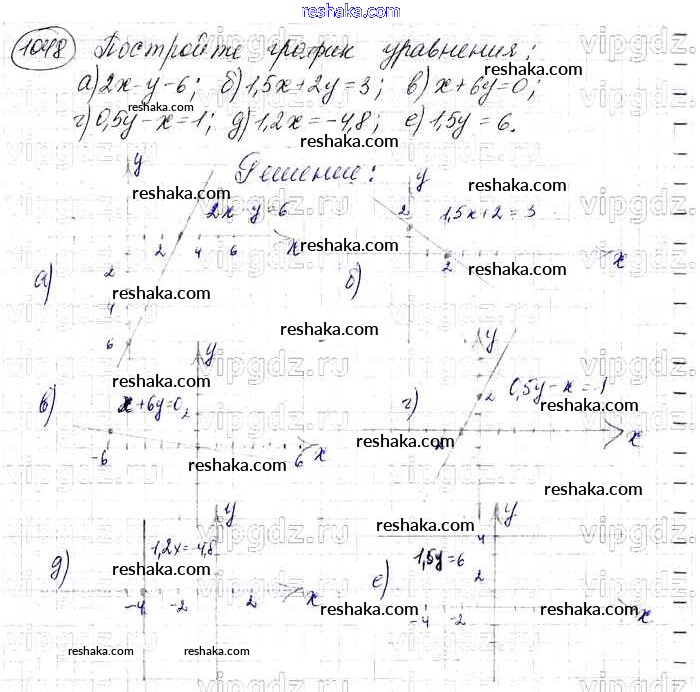 reshaka.com
1048 Постройте график уравнения:
а) 2x-y-6; б) 1,5x+2y=3; в) x+6y=0;
г) 0,5y-x=1; д) 1,2x=-4,8; е) 1,5y=6.
Решение:
а)
y
2x-y=6
2 4 6 x
2
4
6
б)
y
2
1,5x+2=3
2 x
в)
y
x+6y=0
2
-6 6 x
г)
y
0,5y-x=1
2
x
д)
y
1,2x=-4,8
-4 -2 2 x
е)
y
4
1,5y=6
2
-4 -2 x
reshaka.com
vipgdz.ru